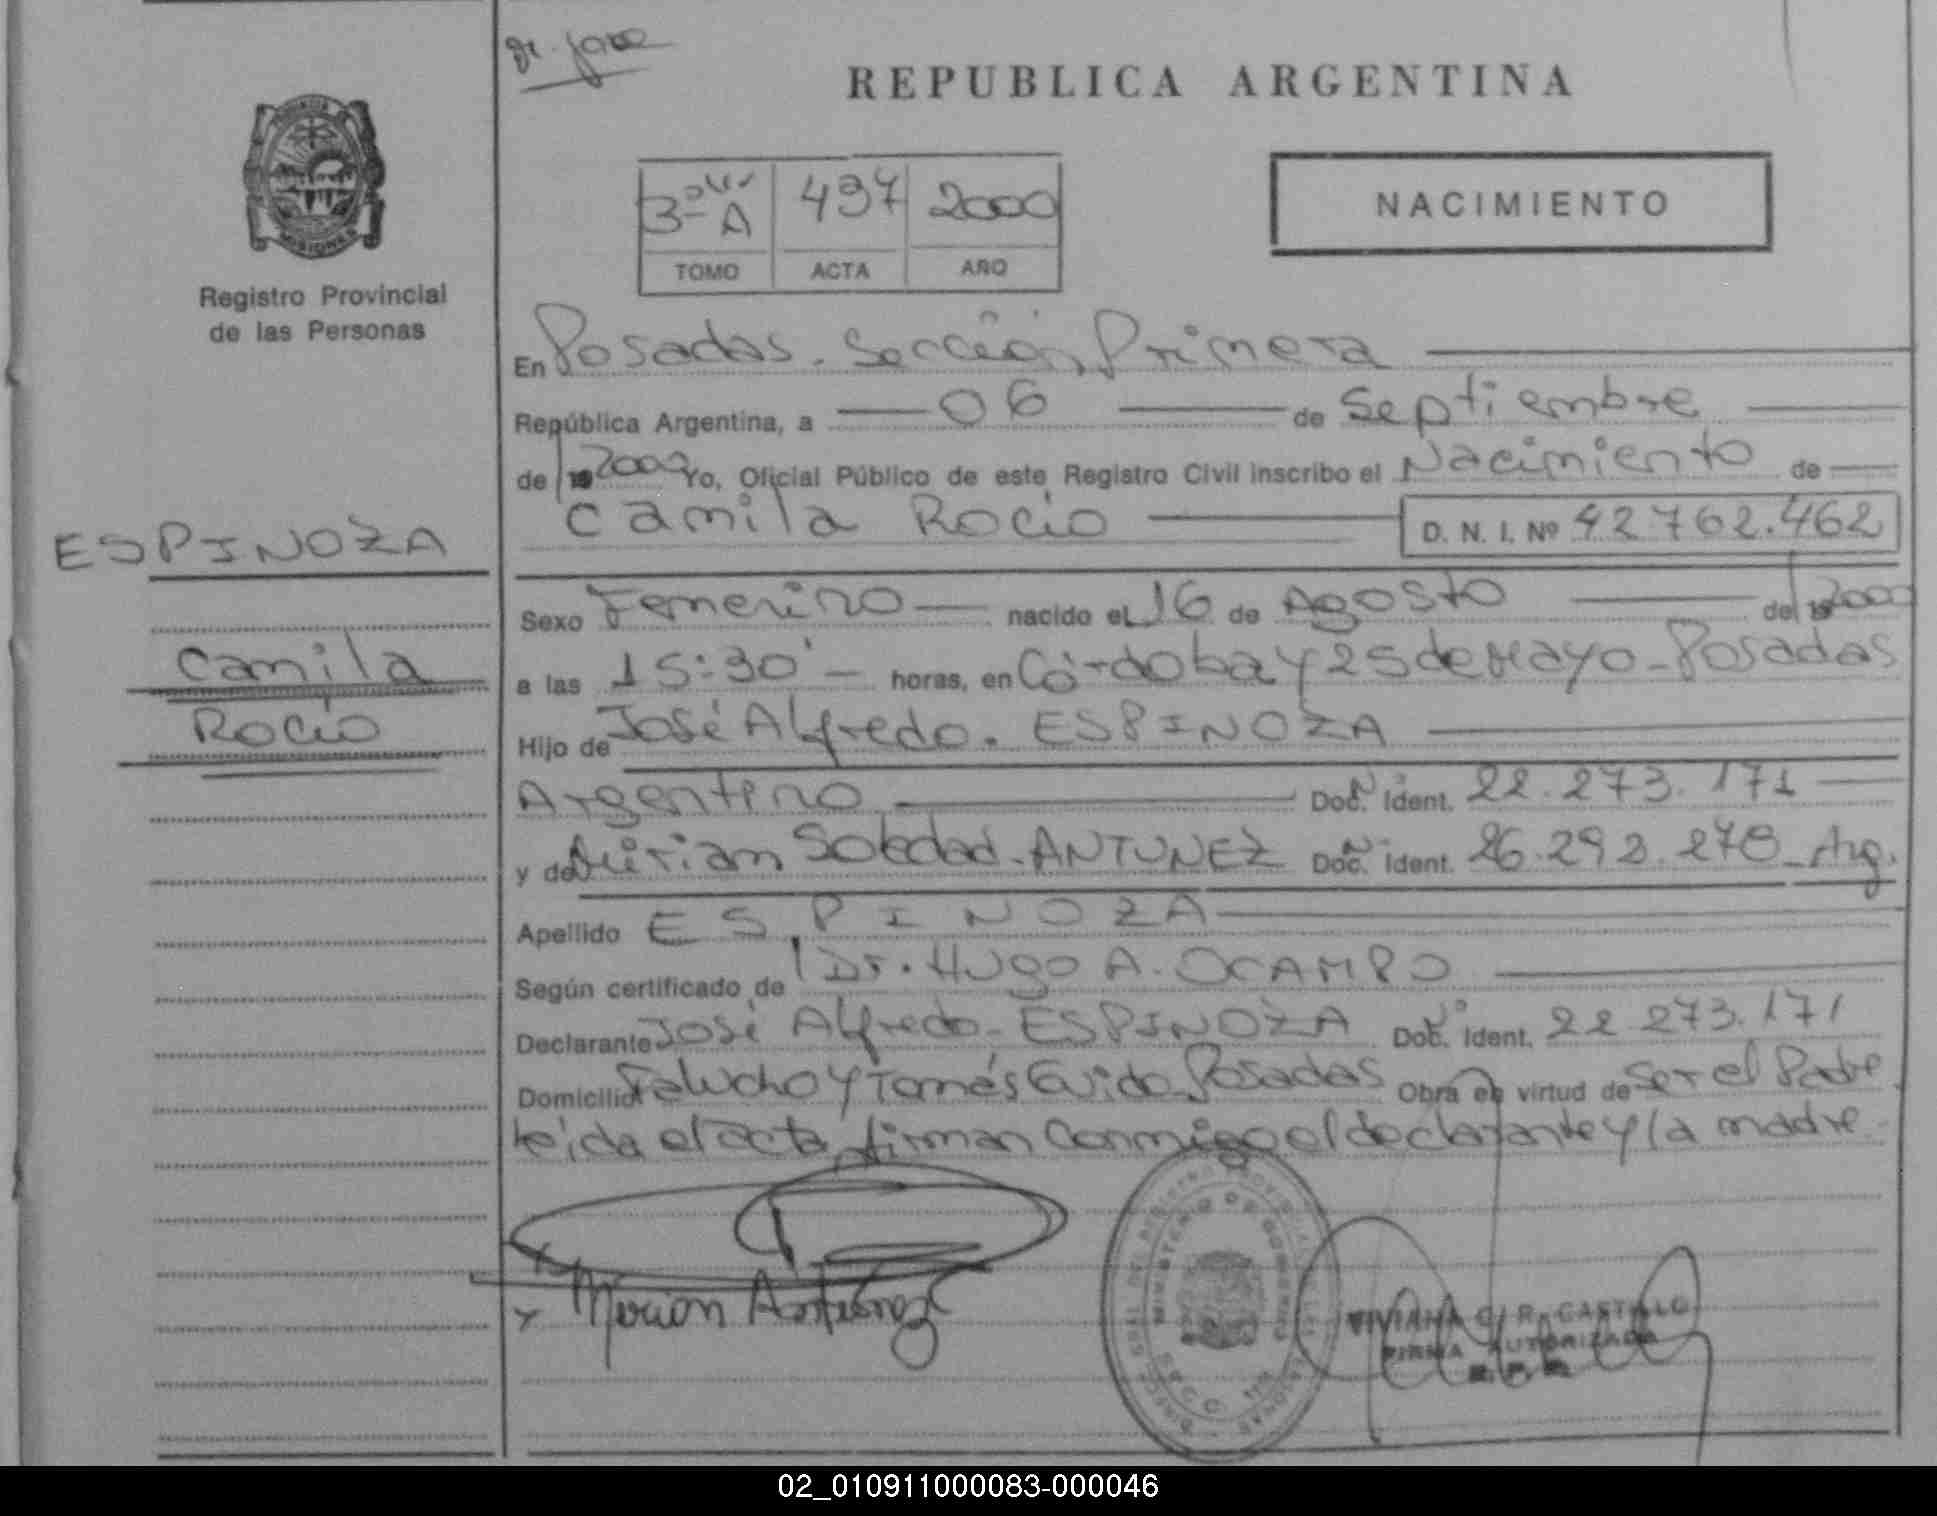 REPUBLICA ARGENTINA
3º A 497 2000
TOMO ACTA AÑO
NACIMIENTO
MISIONES
Registro Provincial
de las Personas
ESPINOZA
Camila
Rocio
En Posadas. Sección Primera
República Argentina, a 06 de Septiembre
de 2000 Yo, Oficial Público de este Registro Civil inscribo el Nacimiento de
Camila Rocio D. N. I. Nº 42762.462
Sexo Femenino nacido el 16 de Agosto de 2000
a las 15:30' horas, en Córdoba y 25 de Mayo - Posadas
Hijo de José Alfredo. ESPINOZA
Argentino Doc. Ident. 22.273.171
y de Mirian Soledad. ANTUNEZ Doc. Ident. 26.292.278 - Arg.
Apellido ESPINOZA
Según certificado de Dr. HUgo A. OCAMPO
Declarante José Alfredo. ESPINOZA Doc. Ident. 22.273.171
Domicilio Falucho y Tomás Guido. Posadas Obra en virtud de Ser el Padre.
leída el acta, firman conmigo el declarante y la madre.
Mirian Antunez
VIVIANA C. R. CASTILLO
FIRMA AUTORIZADA
02_010911000083-000046